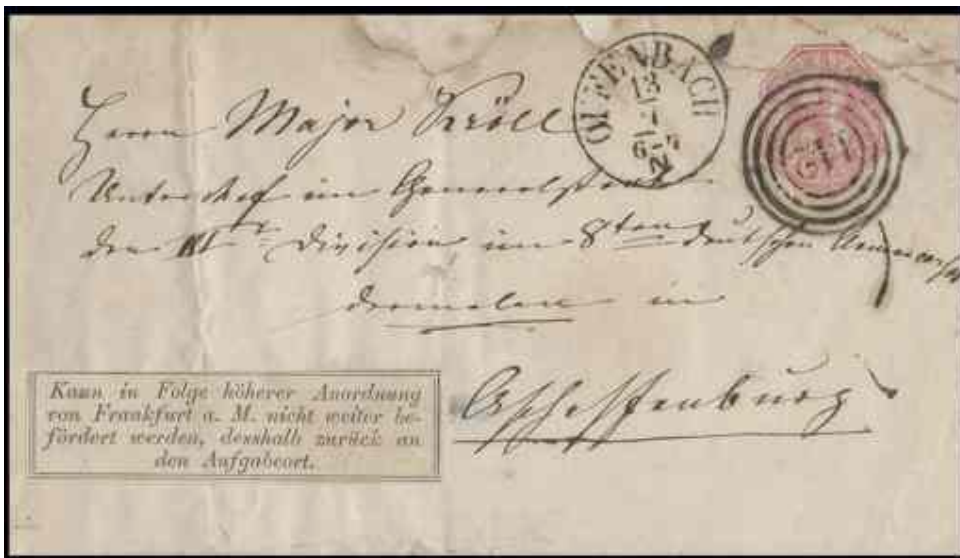 OFFENBACH
13
7
6-7
N
Herrn Major Kröll
Unterchef im Generalstab
der IVten Division im 8ten deutschen
dermalen in
Aschaffenburg
Kann in Folge höherer Anordnung
von Frankfurt a. M. nicht weiter be-
fördert werden, desshalb zurück an
den Aufgabeort.